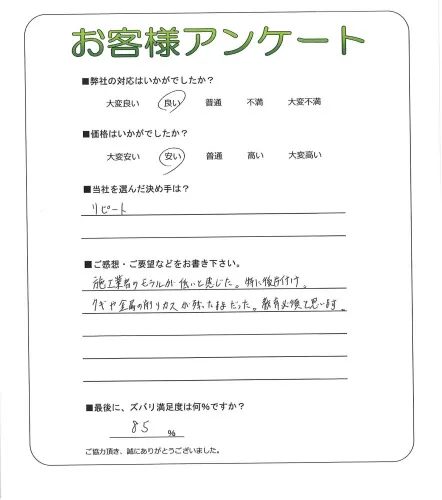 お客様アンケート
■弊社の対応はいかがでしたか？
大変良い 良い 普通 不満 大変不満
■価格はいかがでしたか？
大変安い 安い 普通 高い 大変高い
■当社を選んだ決め手は？
リピート
■ご感想・ご要望などをお書き下さい。
施工業者のモラルが低いと感じた。特に後片付け。
クギや金属の削りカスが残ったままだった。教育必須と思います。
■最後に、ズバリ満足度は何%ですか？
85 %
ご協力頂き、誠にありがとうございました。